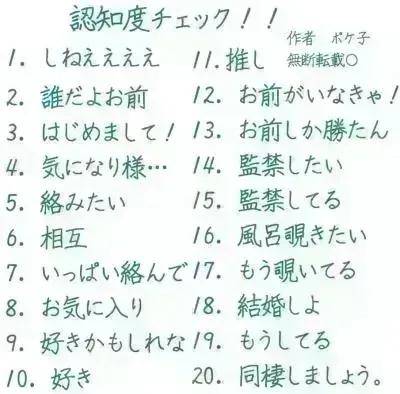 認知度チェック！！
作者 ポケ子
無断転載〇
1. しねええええ
2. 誰だよお前
3. はじめまして！
4. 気になり様…
5. 絡みたい
6. 相互
7. いっぱい絡んで
8. お気に入り
9. 好きかもしれな
10. 好き
11. 推し
12. お前がいなきゃ！
13. お前しか勝たん
14. 監禁したい
15. 監禁してる
16. 風呂覗きたい
17. もう覗いてる
18. 結婚しよ
19. もうしてる
20. 同棲しましょう。